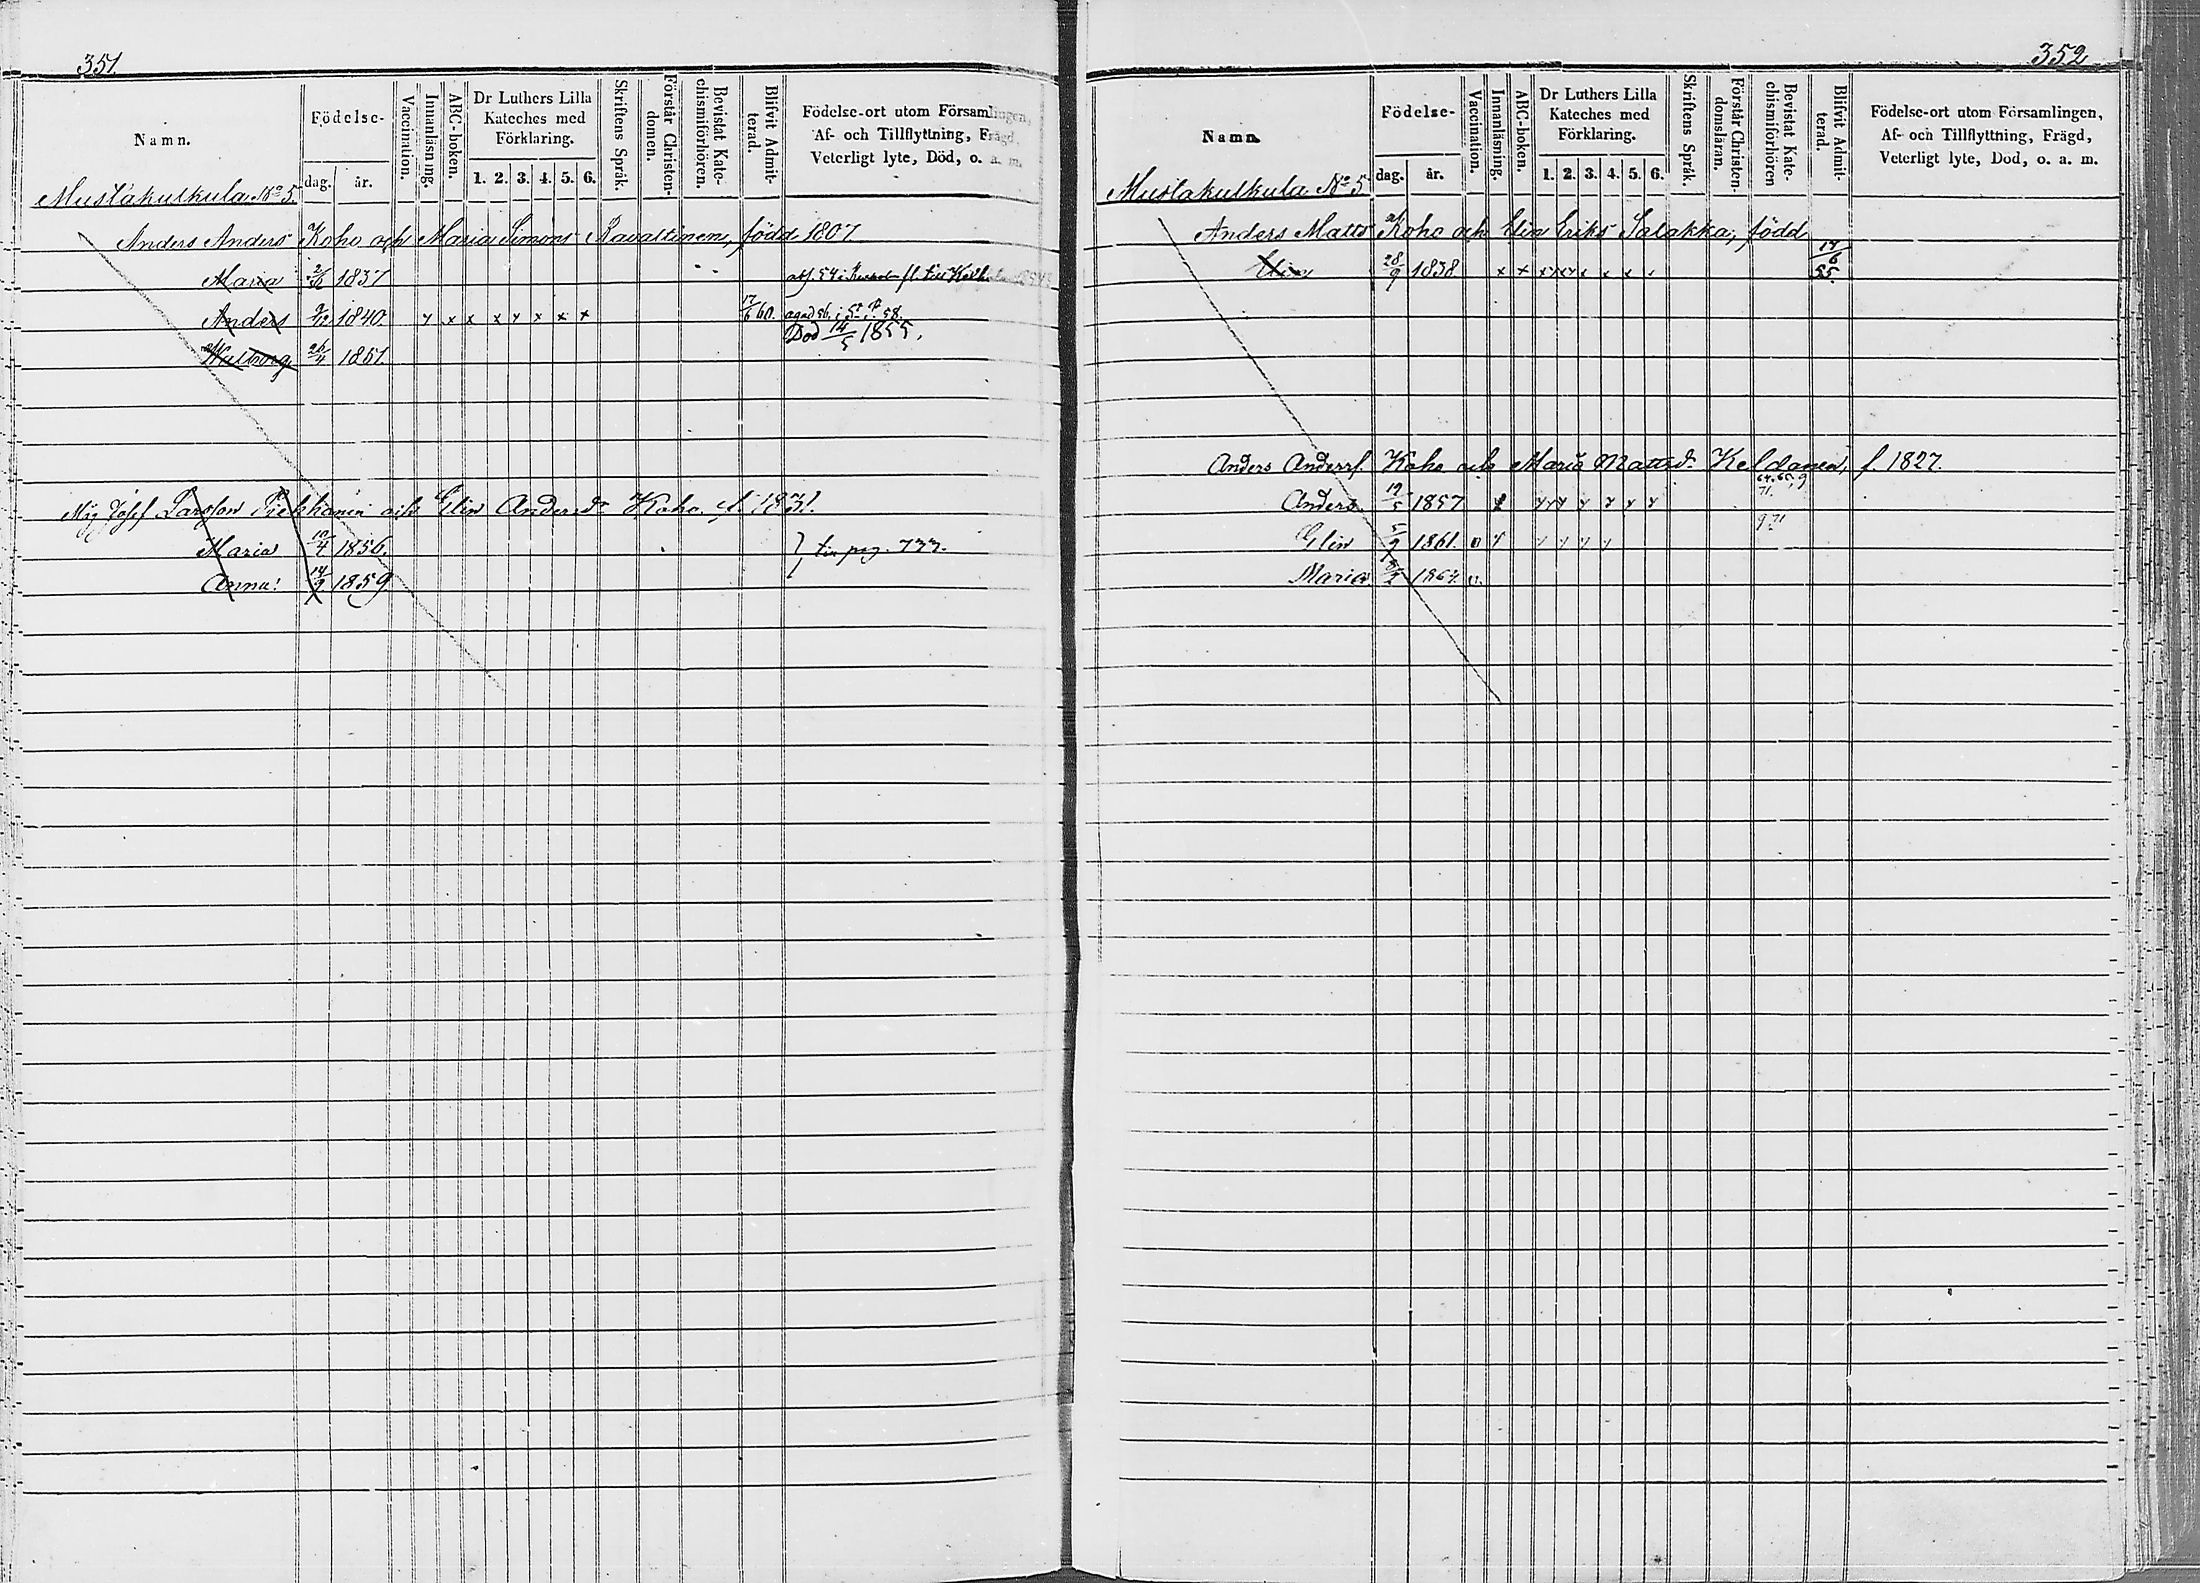 351.
Namn.
Födelse-
dag.
år.
Vaccination.
Innanläsning.
ABC-boken.
Dr Luthers Lilla
Kateches med
Förklaring.
1. 2. 3. 4. 5. 6.
Skriftens Språk.
Förstår Christen-
domen.
Bevistat Kate-
chismiförhören.
Blifvit Admit-
terad.
Födelse-ort utom Församlingen,
Af- och Tillflyttning, Frägd,
Veterligt lyte, Död, o. a. m.
Mustakulkula, No 5.
Anders Anders Koho och Maria Simons Ravattinen, född 1807
Maria 1837
Anders 1840. x x x x y x x x 17/6 60.
Död 14/5 1855.
Walborg 26/11 1851.
Josef Larsson Piekkanen och Elin Andersdr Koho. f. 1831.
Maria 10/4 1856. pag. 777.
Anna: 14/9 1859.
352
Namn.
Födelse-
dag.
år.
Vaccination.
Innanläsning.
ABC-boken.
Dr Luthers Lilla
Kateches med
Förklaring.
1. 2. 3. 4. 5. 6.
Skriftens Språk.
Förstår Christen-
domsläran.
Bevistat Kate-
chismiförhören
Blifvit Admit-
terad.
Födelse-ort utom Församlingen,
Af- och Tillflyttning, Frägd,
Veterligt lyte, Död, o. a. m.
Mustakulkula No 5
Anders Matts Koho och Elin Eriks Salakka, född
Elin 28/9 1838 x x x x x x x x 17/6 55.
Anders Anderss. Koho och Maria Mattsdr Keldanen, f. 1827.
Anders 19/5 1857
Elin 5/9 1861.
Maria 1864